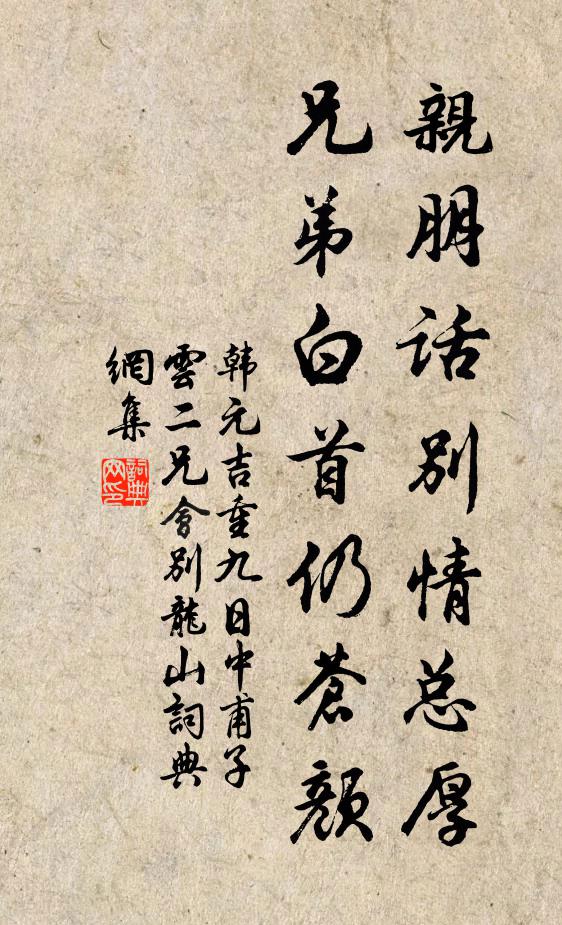 親朋話別情总厚
兄弟白首仍蒼顏
韩元吉重九日中甫子
雲二兄會别龍山詞典
網集
詞典
网印